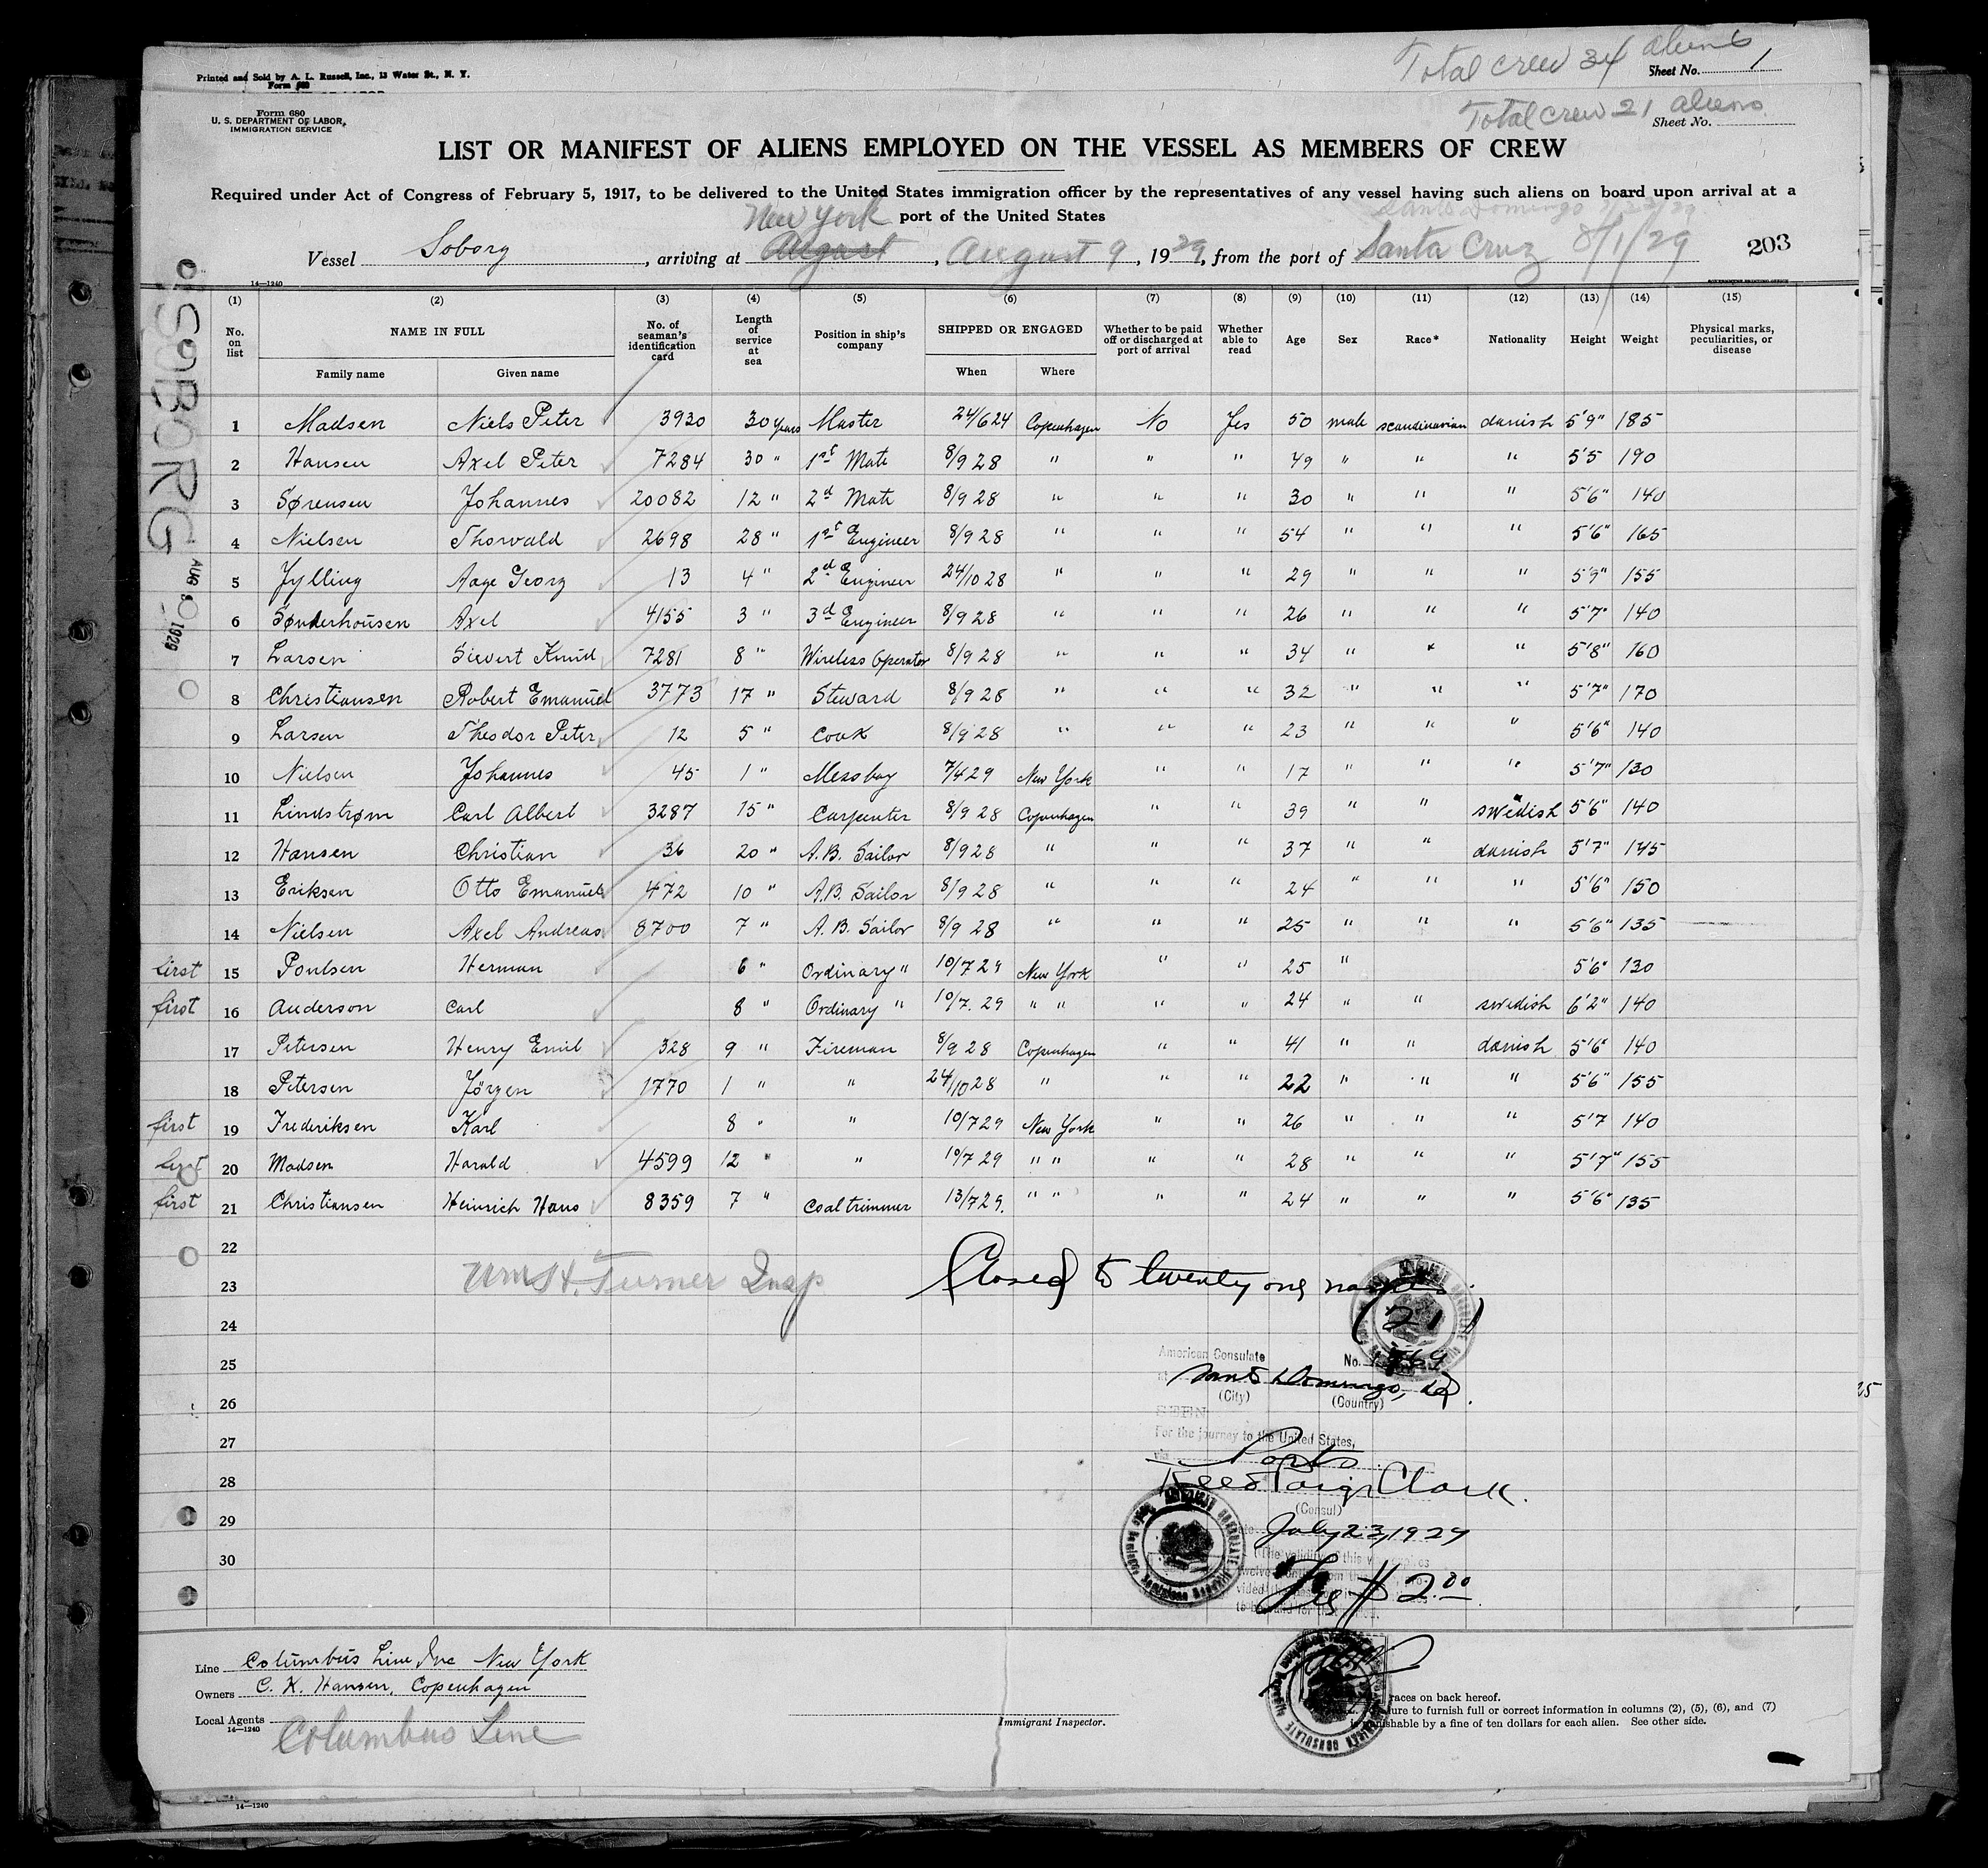 Printed and Sold by A. L. Russell, Inc., 13 Water St., N. Y.
Form 680
Total crew 34 aliens
Sheet No. 1
Form 680
U. S. DEPARTMENT OF LABOR,
IMMIGRATION SERVICE
Total crew 21 aliens
Sheet No.
LIST OR MANIFEST OF ALIENS EMPLOYED ON THE VESSEL AS MEMBERS OF CREW
Required under Act of Congress of February 5, 1917, to be delivered to the United States immigration officer by the representatives of any vessel having such aliens on board upon arrival at a
port of the United States
New York Santo Domingo
Vessel Soborg, arriving at August, August 9, 1929, from the port of Santa Cruz 8/1/29 203
14—1240
SOBORG
AUG 1929
(1) (2) (3) (4) (5) (6) (7) (8) (9) (10) (11) (12) (13) (14) (15)
No. on list NAME IN FULL No. of seaman's identification card Length of service at sea Position in ship's company SHIPPED OR ENGAGED Whether to be paid off or discharged at port of arrival Whether able to read Age Sex Race* Nationality Height Weight Physical marks, peculiarities, or disease
Family name Given name When Where
1 Madsen Niels Peter 3930 30 years Master 24/6 24 Copenhagen No Yes 50 male scandinavian danish 5'9" 185
2 Hansen Axel Peter 7284 30 " 1st Mate 8/9 28 " " " 49 " " " 5'5 190
3 Sørensen Johannes 20082 12 " 2d Mate 8/9 28 " " " 30 " " " 5'6" 140
4 Nielsen Thorvald 2698 28 " 1st Engineer 8/9 28 " " " 54 " " " 5'6" 165
5 Jylling Aage Georg 13 4 " 2d Engineer 24/10 28 " " " 29 " " " 5'9" 155
6 Sønderhousen Axel 4155 3 " 3d Engineer 8/9 28 " " " 26 " " " 5'7" 140
7 Larsen Sievert Knud 7281 8 " Wireless Operator 8/9 28 " " " 34 " " " 5'8" 160
8 Christiansen Robert Emanuel 3773 17 " Steward 8/9 28 " " " 32 " " " 5'7" 170
9 Larsen Theodor Peter 12 5 " Cook 8/9 28 " " " 23 " " " 5'6" 140
10 Nielsen Johannes 45 1 " Messboy 7/4 29 New York " " 17 " " " 5'7" 130
11 Lindstrøm Carl Albert 3287 15 " Carpenter 8/9 28 Copenhagen " " 39 " " swedish 5'6" 140
12 Hansen Christian 36 20 " A.B. Sailor 8/9 28 " " " 37 " " danish 5'7" 145
13 Eriksen Otto Emanuel 472 10 " A.B. Sailor 8/9 28 " " " 24 " " " 5'6" 150
14 Nielsen Axel Andreas 8700 7 " A.B. Sailor 8/9 28 " " " 25 " " " 5'6" 135
first 15 Poulsen Herman 6 " Ordinary " 10/7 29 New York " " 25 " 5'6" 130
first 16 Anderson Carl 8 " Ordinary " 10/7. 29 " " " " 24 " " swedish 6'2" 140
17 Petersen Henry Emil 328 9 " Fireman 8/9 28 Copenhagen " " 41 " " danish 5'6" 140
18 Petersen Jörgen 1770 1 " " 24/10 28 " " " 22 " " " 5'6" 155
first 19 Frederiksen Karl 8 " " 10/7 29 New York " " 26 " " " 5'7 140
first 20 Madsen Harald 4599 12 " " 10/7 29 " " " " 28 " " " 5'7" 155
first 21 Christiansen Heinrich Hans 8359 7 " Coaltrimmer 13/7 29. " " " " 24 " " " 5'6" 135
22
23 Wm H. Turner Insp Closed to twenty one names
24 (21)
25 American Consulate No.
Santo Domingo, D.R.
26 (City) (Country)
SEEN
27 For the journey to the United States,
via Ports
28 Reed Paige Clark.
(Consul)
29 July 23, 1929
30
Fee $2.00
Line Columbus Line Inc New York
Owners C. K. Hansen, Copenhagen
Local Agents Columbus Line
14—1240
Immigrant Inspector.
races on back hereof.
ure to furnish full or correct information in columns (2), (5), (6), and (7)
ishable by a fine of ten dollars for each alien. See other side.
14—1240